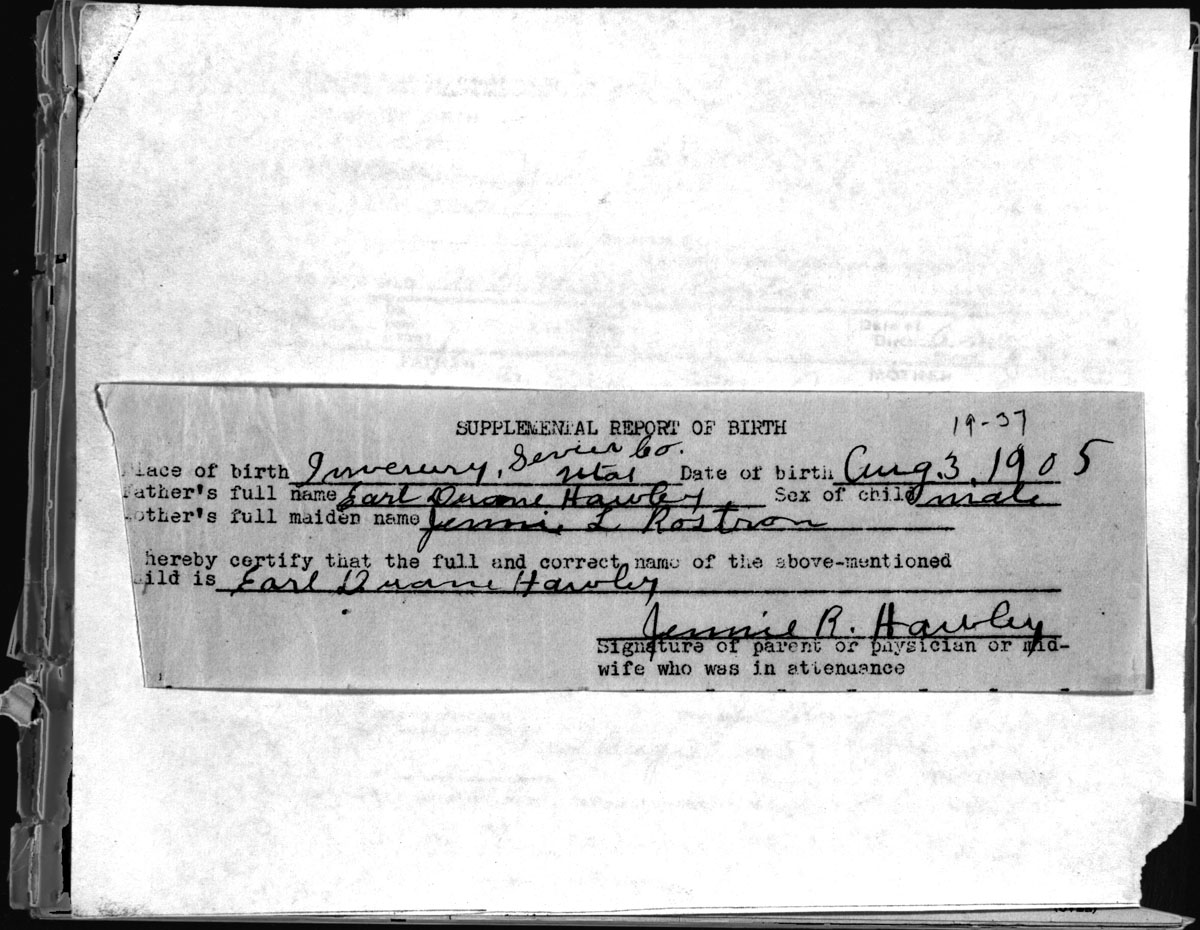 SUPPLEMENTAL REPORT OF BIRTH 19-37
Place of birth Inverury, Sevier Co. Utah Date of birth Aug. 3, 1905
Father's full name Earl Duane Hawley Sex of child male
Mother's full maiden name Jennie L Rostron
hereby certify that the full and correct name of the above-mentioned
child is Earl Duane Hawley
Jennie R. Hawley
Signature of parent or physician or mid-
wife who was in attendance